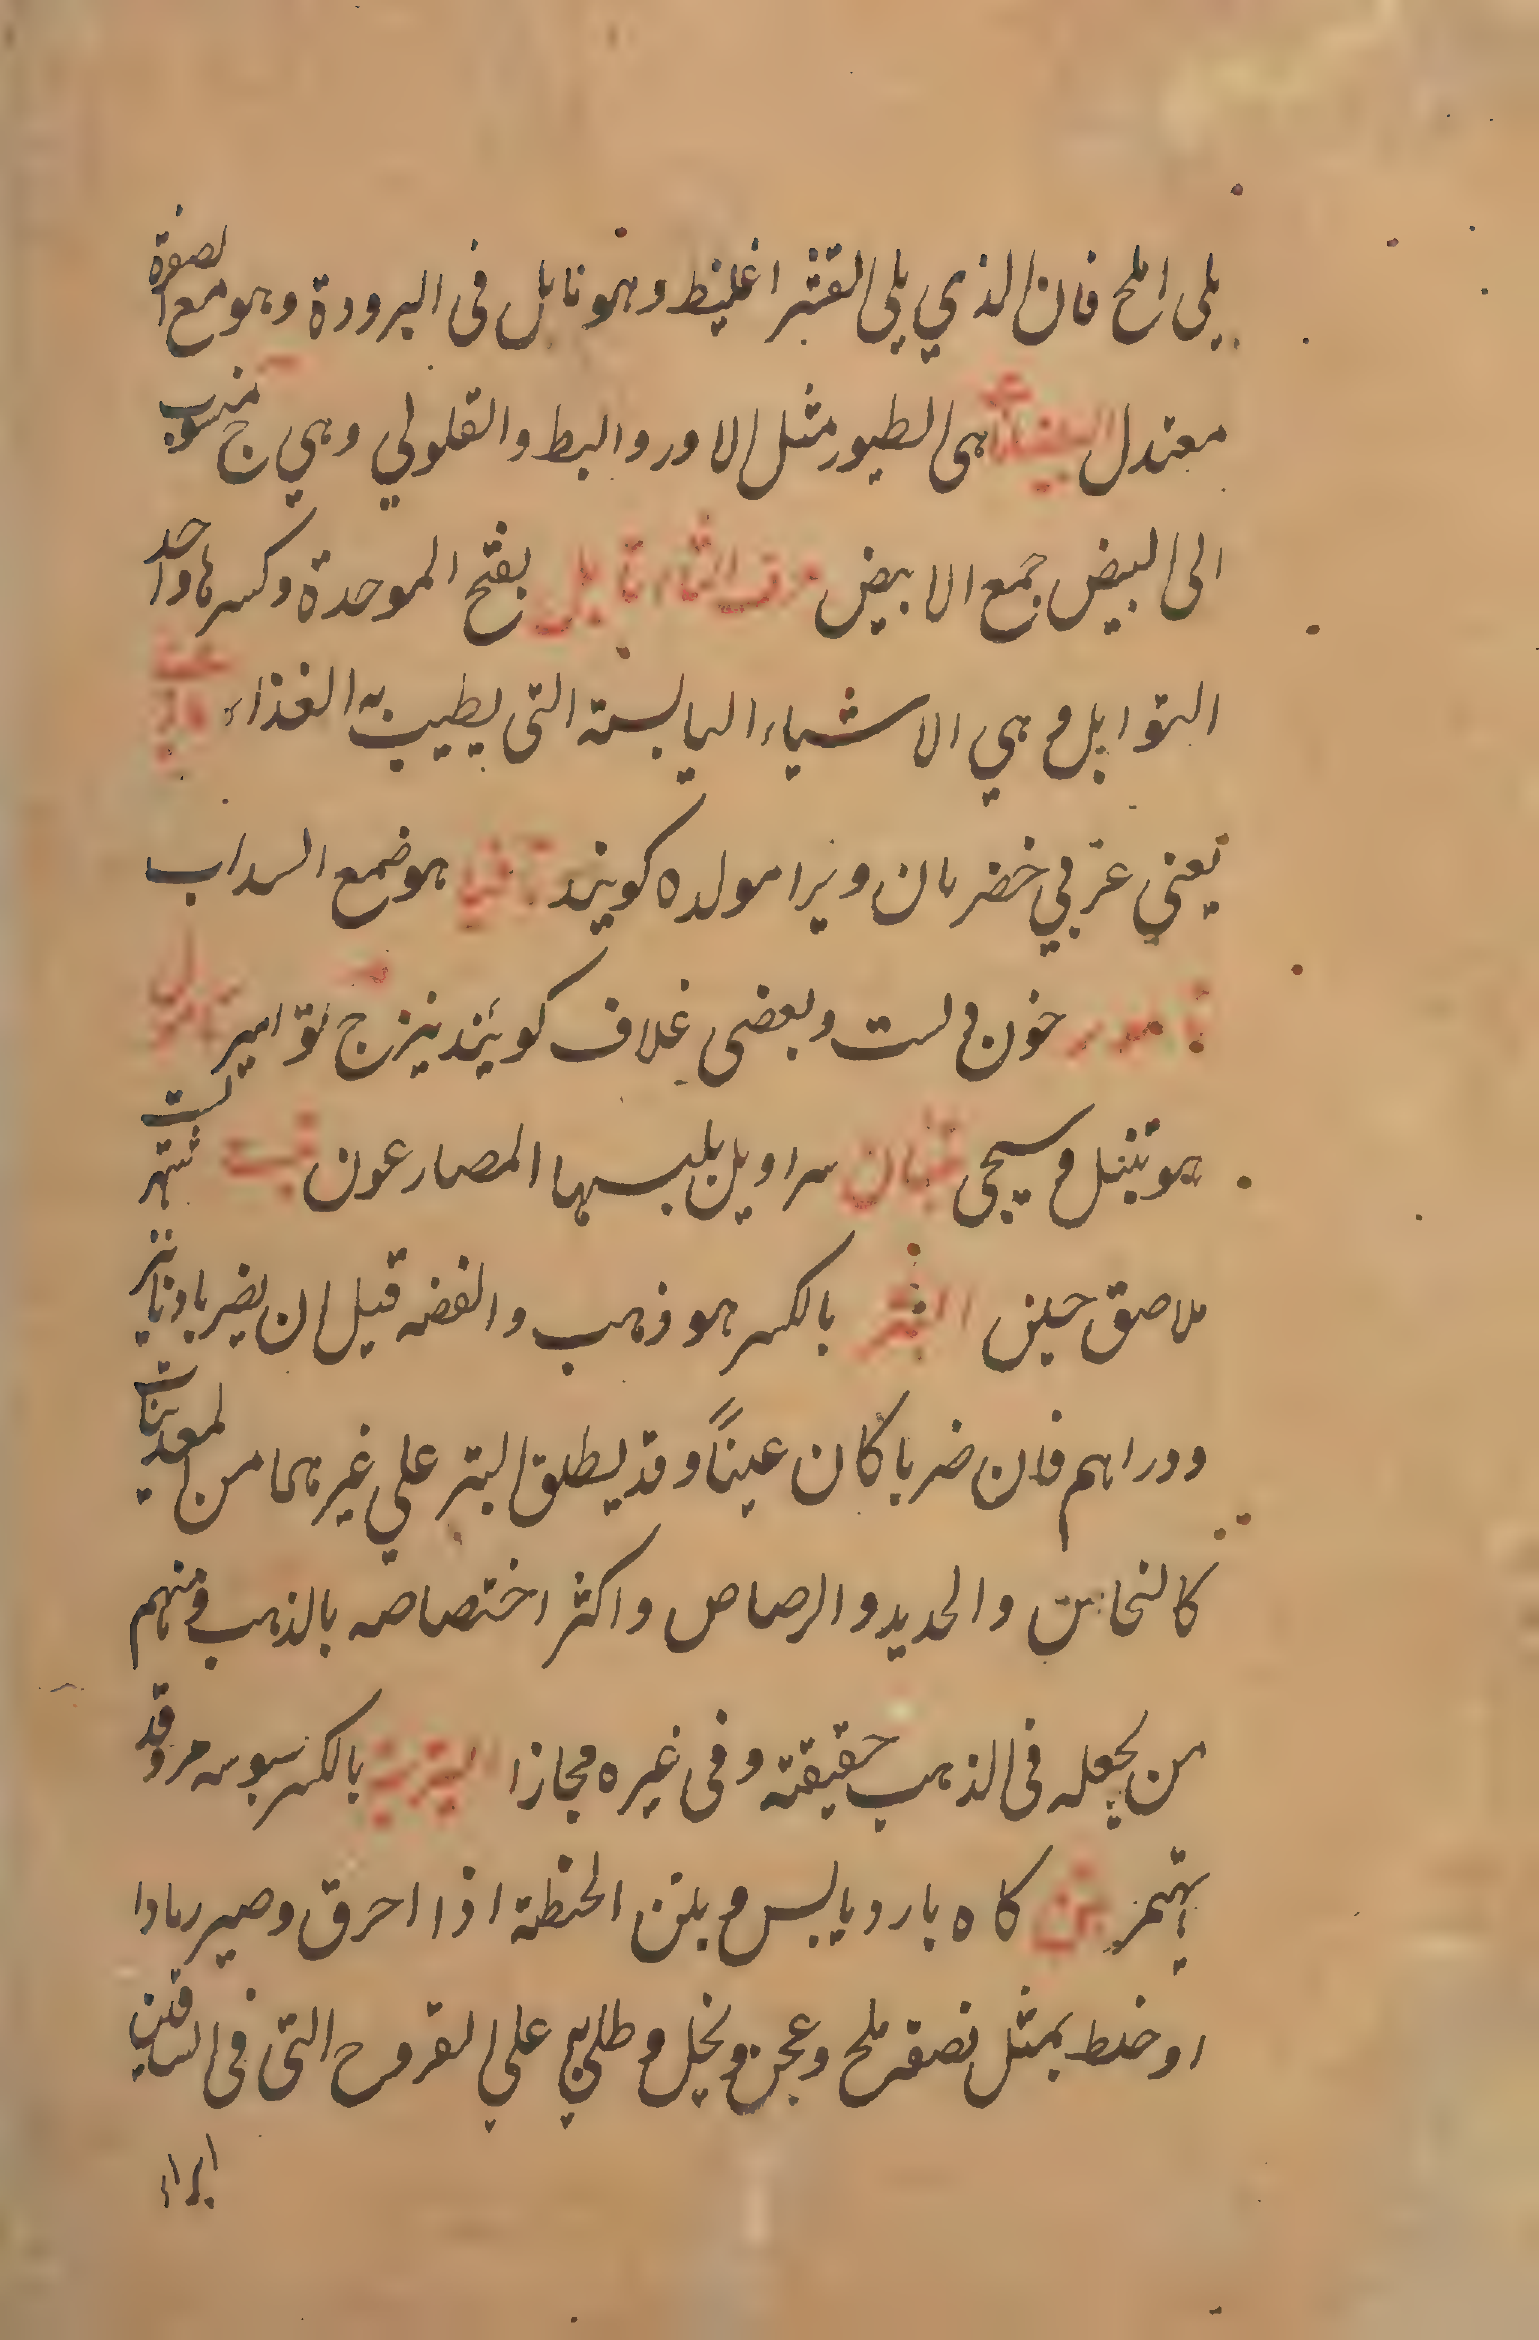 يلى الملح فان الذي يلى القشر اغليظ وهو نايل فى البرودة وهو مع الصفرة
معتدل هى الطيور مثل الاور والبط والقلولي وهي ج منسوب
الى البيض جمع الابيض حرف التاء تابل بفتح الموحدة وكسرها واحد
التوابل وهي الاشياء اليابسته التى يطيب به الغذاء
يعني عربي خضر بان ويرا مولده كويند هو ضمع السداب
تامور خون دلست وبعضى غلاف كويند نيز ج توامير
هو تنبل وسيجى تبان سراويل يلبسها المصارعون تبست
ملاصق حيض التبر بالكسر هو ذهب والفضه قبل ان يضربا دنانير
ودراهم فان ضربا كان عيناً وقد يطلق البتر علي غيرهما من المعدنيات
كالنحاس والحديد والرصاص واكثر اختصاصه بالذهب ومنهم
من يجعله فى الذهب حقيقته وفى غيره مجازا بالكسر سبوسه مر وقد
يهمز تبن كاه بارد يابس وبتن الحنطة اذا احرق وصير رمادا
او خلط بمثل نصفه ملح وعجن ونخل وطلي به علي القروح التى فى الساقين
ابراء